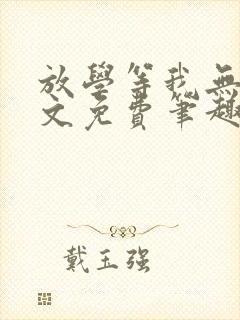 放學等我無
文免費筆趣
戴玉强